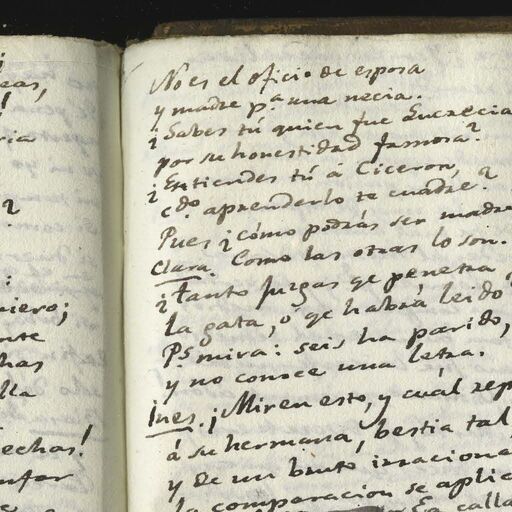 eas,
!
ria
?
:
niero;
nte
has
lla
echas!
nfer
No es el oficio de esposa
y madre p.ª una necia.
¿Sabes tú quien fue Lucrecia
por su honestidad famosa?
¿Entiendes tú á Ciceron,
c.do aprenderlo te cuadre?
Pues ¿cómo podrás ser madre
Clara. Como las otras lo son.
¿Tanto juzgas qe penetra
la gata, ó qe habrá leido
P.s mira: seis ha parido,
y no conoce una letra.
Ines. ¡Miren esto, y cuál rep
á su hermana, bestia tal
y de un bruto irraciona
la comparacion se aplic
Ea calla